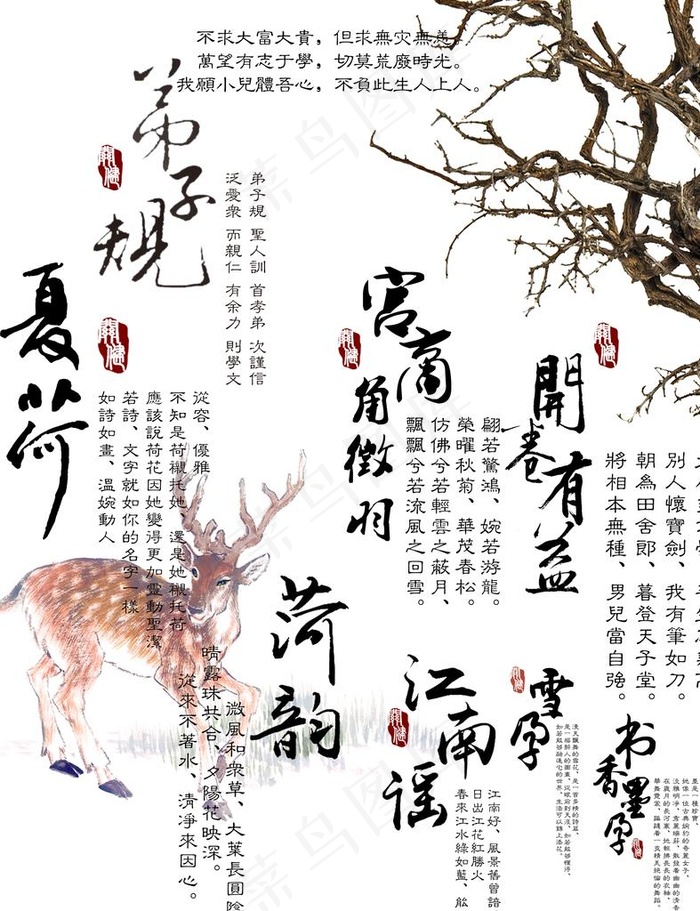 不求大富大貴，但求無灾無恙。
萬望有志于學，切莫荒廢時光。
我願小兒體吾心，不負此生人上人。
弟子規
弟子規 聖人訓 首孝弟 次謹信
泛愛衆 而親仁 有余力 則學文
夏荷
從容、優雅
不知是荷襯托她 還是她襯托荷
應該說荷花因她變得更加靈動聖潔
若詩、文字就如你的名字一樣
如詩如畫、溫婉動人
宫商角徵羽
翩若驚鴻、婉若游龍。
榮曜秋菊、華茂春松。
仿佛兮若輕雲之蔽月、
飄飄兮若流風之回雪。
開卷有益
別人懷寶劍、我有筆如刀。
朝為田舍郎、暮登天子堂。
將相本無種、男兒當自強。
荷韵
微風和衆草、大葉長圓陰
晴露珠共合、夕陽花映深。
從來不著水、清淨來因心。
江南谣
江南好、風景舊曾諳
日出江花紅勝火
春來江水綠如藍、能
雪孕
书香墨孕